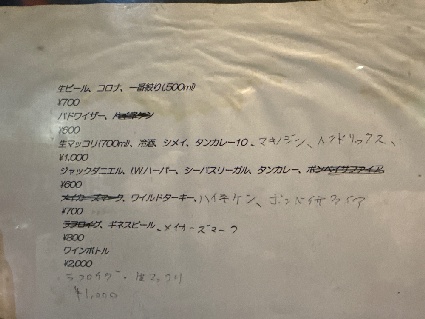 生ビール、コロナ、一番絞り(500ml)
¥700
バドワイザー、ハイネケン
¥600
生マッコリ(700ml)、冷酒、シメイ、タンカレー10、マキノジン、ヘンドリックス、
¥1,000
ジャックダニエル、IWハーパー、シーバスリーガル、タンカレー、ボンベイサファイア
¥600
メイカーズマーク、ワイルドターキー、ハイネケン、ボンベイサファイア
¥700
ラフロイグ、ギネスビール、メイカーズマーク
¥800
ワインボトル
¥2,000
ラフロイグ、生マッコリ
¥1,000